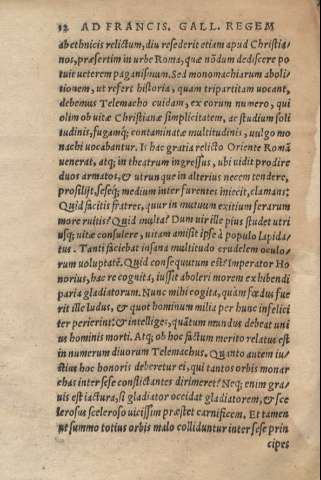 12 AD FRANCIS. GALL. REGEM
ab ethnicis relictum, diu resederit etiam apud Christia/
nos, præsertim in urbe Roma, quæ nõdum dediscere po
tuit ueterem paganismum. Sed monomachiarum aboli/
tionem, ut refert historia, quam tripartitam uocant,
debemus Telemacho cuidam, ex eorum numero, qui
olim ob uitæ Christianæ simplicitatem, ac studium soli
tudinis, fugamq; contaminatæ multitudinis, uulgo mo
nachi uocabantur. Is hac gratia relicto Oriente Romã
uenerat, atq; in theatrum ingressus, ubi uidit prodire
duos armatos, & utrunque in alterius necem tendere,
prosilijt, seseq; medium inter furentes iniecit, clamans:
Quid facitis fratres, quur in mutuum exitium ferarum
more ruitis? Quid multa? Dum uir ille pius studet utri
usq; uitæ consulere, uitam amisit ipse à populo lapida/
tus. Tanti faciebat insana multitudo crudelem oculo/
rum uoluptatẽ. Quid consequutum est? Imperator Ho
norius, hac re cognita, iussit aboleri morem exhibendi
paria gladiatorum. Nunc mihi cogita, quàm fœdus fue
rit ille ludus, & quot hominum milia per hunc infelici
ter perierint: & intelliges, quãtum mundus debeat uni
us hominis morti. Atq; ob hoc factum merito relatus est
in numerum diuorum Telemachus. Quanto autem iu/
stius hoc honoris deberetur ei, qui tantos orbis monar
chas inter sese conflictantes dirimeret? Neq; enim gra/
uis est iactura, si gladiator occidat gladiatorem, & sce
lerosus sceleroso uicissim præstet carnificem. Et tamen
ut summo totius orbis malo colliduntur inter sese prin
cipes